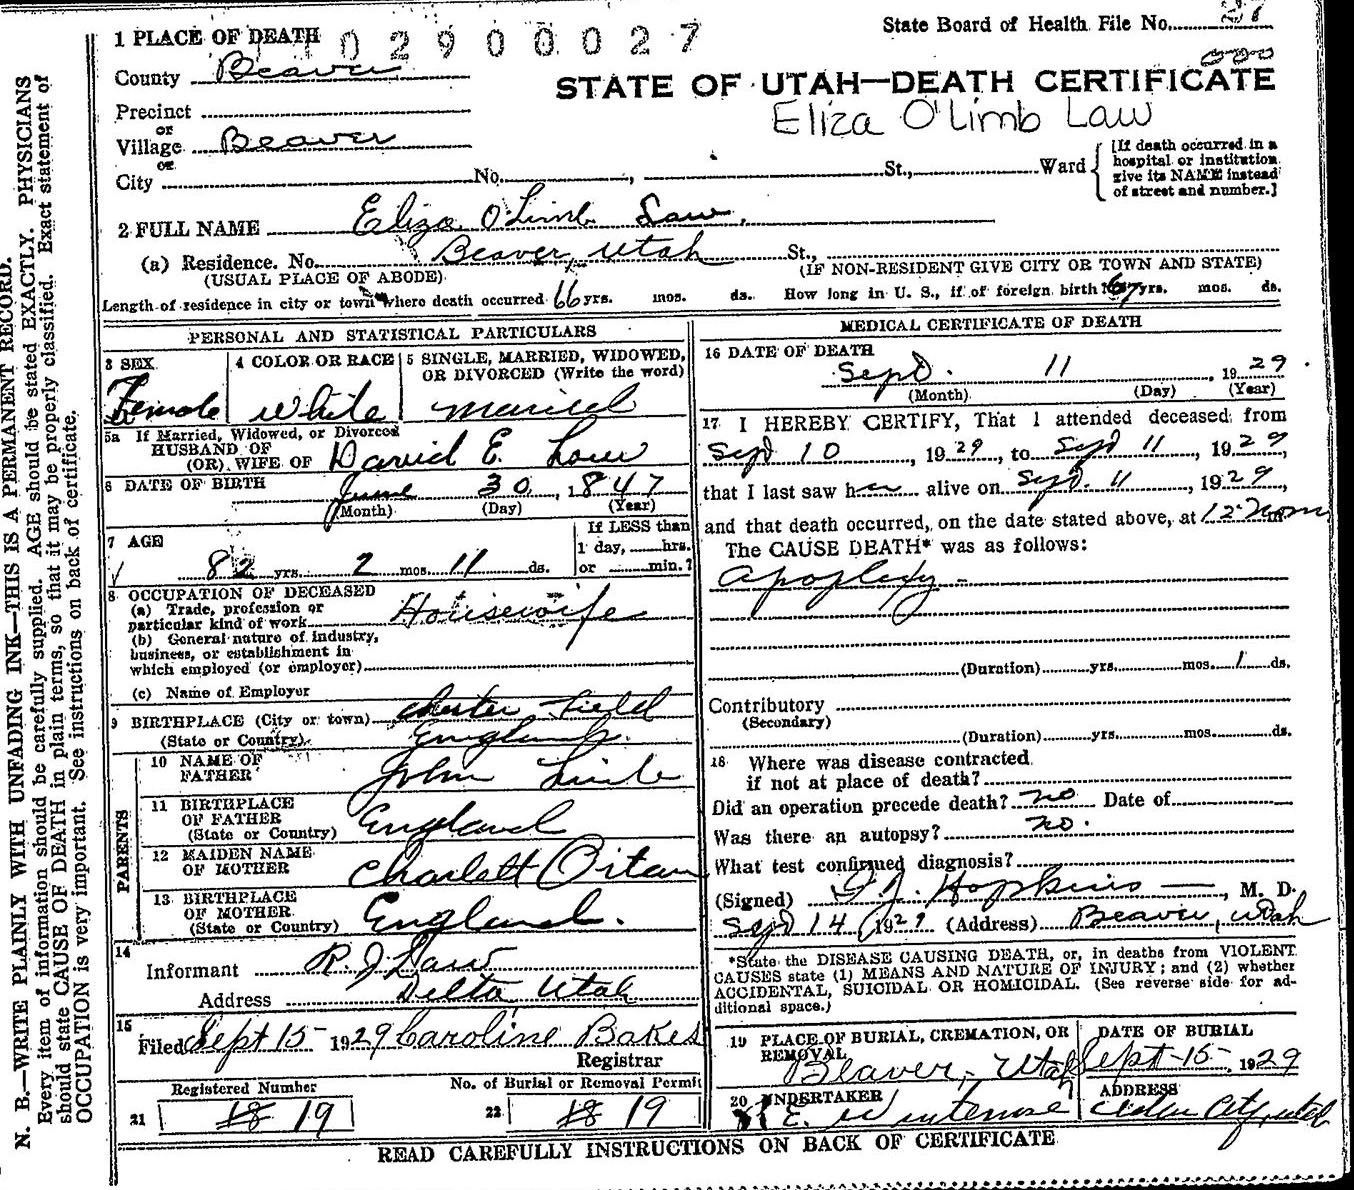 State Board of Health File No. 27
1 PLACE OF DEATH
02900027
County Beaver
STATE OF UTAH—DEATH CERTIFICATE
Eliza O'Limb Law
Precinct
or
Village Beaver
or
City No. , St., Ward
[If death occurred in a
hospital or institution
give its NAME instead
of street and number.]
2 FULL NAME Eliza O'Limb Law.
(a) Residence. No. Beaver, Utah St.,
(USUAL PLACE OF ABODE)
(IF NON-RESIDENT GIVE CITY OR TOWN AND STATE)
Length of residence in city or town where death occurred 66 yrs. mos. ds. How long in U. S., if of foreign birth? 67 yrs. mos. ds.
PERSONAL AND STATISTICAL PARTICULARS
3 SEX
Female
4 COLOR OR RACE
White
5 SINGLE, MARRIED, WIDOWED,
OR DIVORCED (Write the word)
Married
5a If Married, Widowed, or Divorced
HUSBAND OF
(OR) WIFE OF David E. Law
6 DATE OF BIRTH June 30, 1847
(Month) (Day) (Year)
7 AGE
82 yrs. 2 mos. 11 ds.
If LESS than
1 day, hrs.
or min.?
8 OCCUPATION OF DECEASED
(a) Trade, profession or
particular kind of work Housewife
(b) General nature of industry,
business, or establishment in
which employed (or employer)
(c) Name of Employer
9 BIRTHPLACE (City or town) Chester Field
(State or Country) England.
PARENTS
10 NAME OF
FATHER John Limb
11 BIRTHPLACE
OF FATHER
(State or Country) England
12 MAIDEN NAME
OF MOTHER Charlett
13 BIRTHPLACE
OF MOTHER
(State or Country) England.
14
Informant R. J. Law
Address Delta Utah
15
Filed Sept 15 1929 Caroline Bakes
Registrar
Registered Number
21 18 19
No. of Burial or Removal Permit
22 18 19
MEDICAL CERTIFICATE OF DEATH
16 DATE OF DEATH
Sept. 11, 1929
(Month) (Day) (Year)
17 I HEREBY CERTIFY, That I attended deceased from
Sept 10, 1929, to Sept 11, 1929,
that I last saw her alive on Sept. 11, 1929,
and that death occurred, on the date stated above, at 12 Noon m.
The CAUSE DEATH* was as follows:
Apoplexy
(Duration) yrs. mos. 1 ds.
Contributory
(Secondary)
(Duration) yrs. mos. ds.
18 Where was disease contracted
if not at place of death?
Did an operation precede death? no Date of
Was there an autopsy? no.
What test confirmed diagnosis?
(Signed) Hopkins, M. D.
Sept 14, 1929 (Address) Beaver, Utah
*State the DISEASE CAUSING DEATH, or, in deaths from VIOLENT
CAUSES state (1) MEANS AND NATURE OF INJURY; and (2) whether
ACCIDENTAL, SUICIDAL OR HOMICIDAL. (See reverse side for ad-
ditional space.)
19 PLACE OF BURIAL, CREMATION, OR
REMOVAL
Beaver, Utah
DATE OF BURIAL
Sept 15, 1929
20 UNDERTAKER
ADDRESS
Cedar City, Utah
READ CAREFULLY INSTRUCTIONS ON BACK OF CERTIFICATE
N. B.—WRITE PLAINLY WITH UNFADING INK—THIS IS A PERMANENT RECORD.
Every item of information should be carefully supplied. AGE should be stated EXACTLY. PHYSICIANS
should state CAUSE OF DEATH in plain terms, so that it may be properly classified. Exact statement of
OCCUPATION is very important. See instructions on back of certificate.